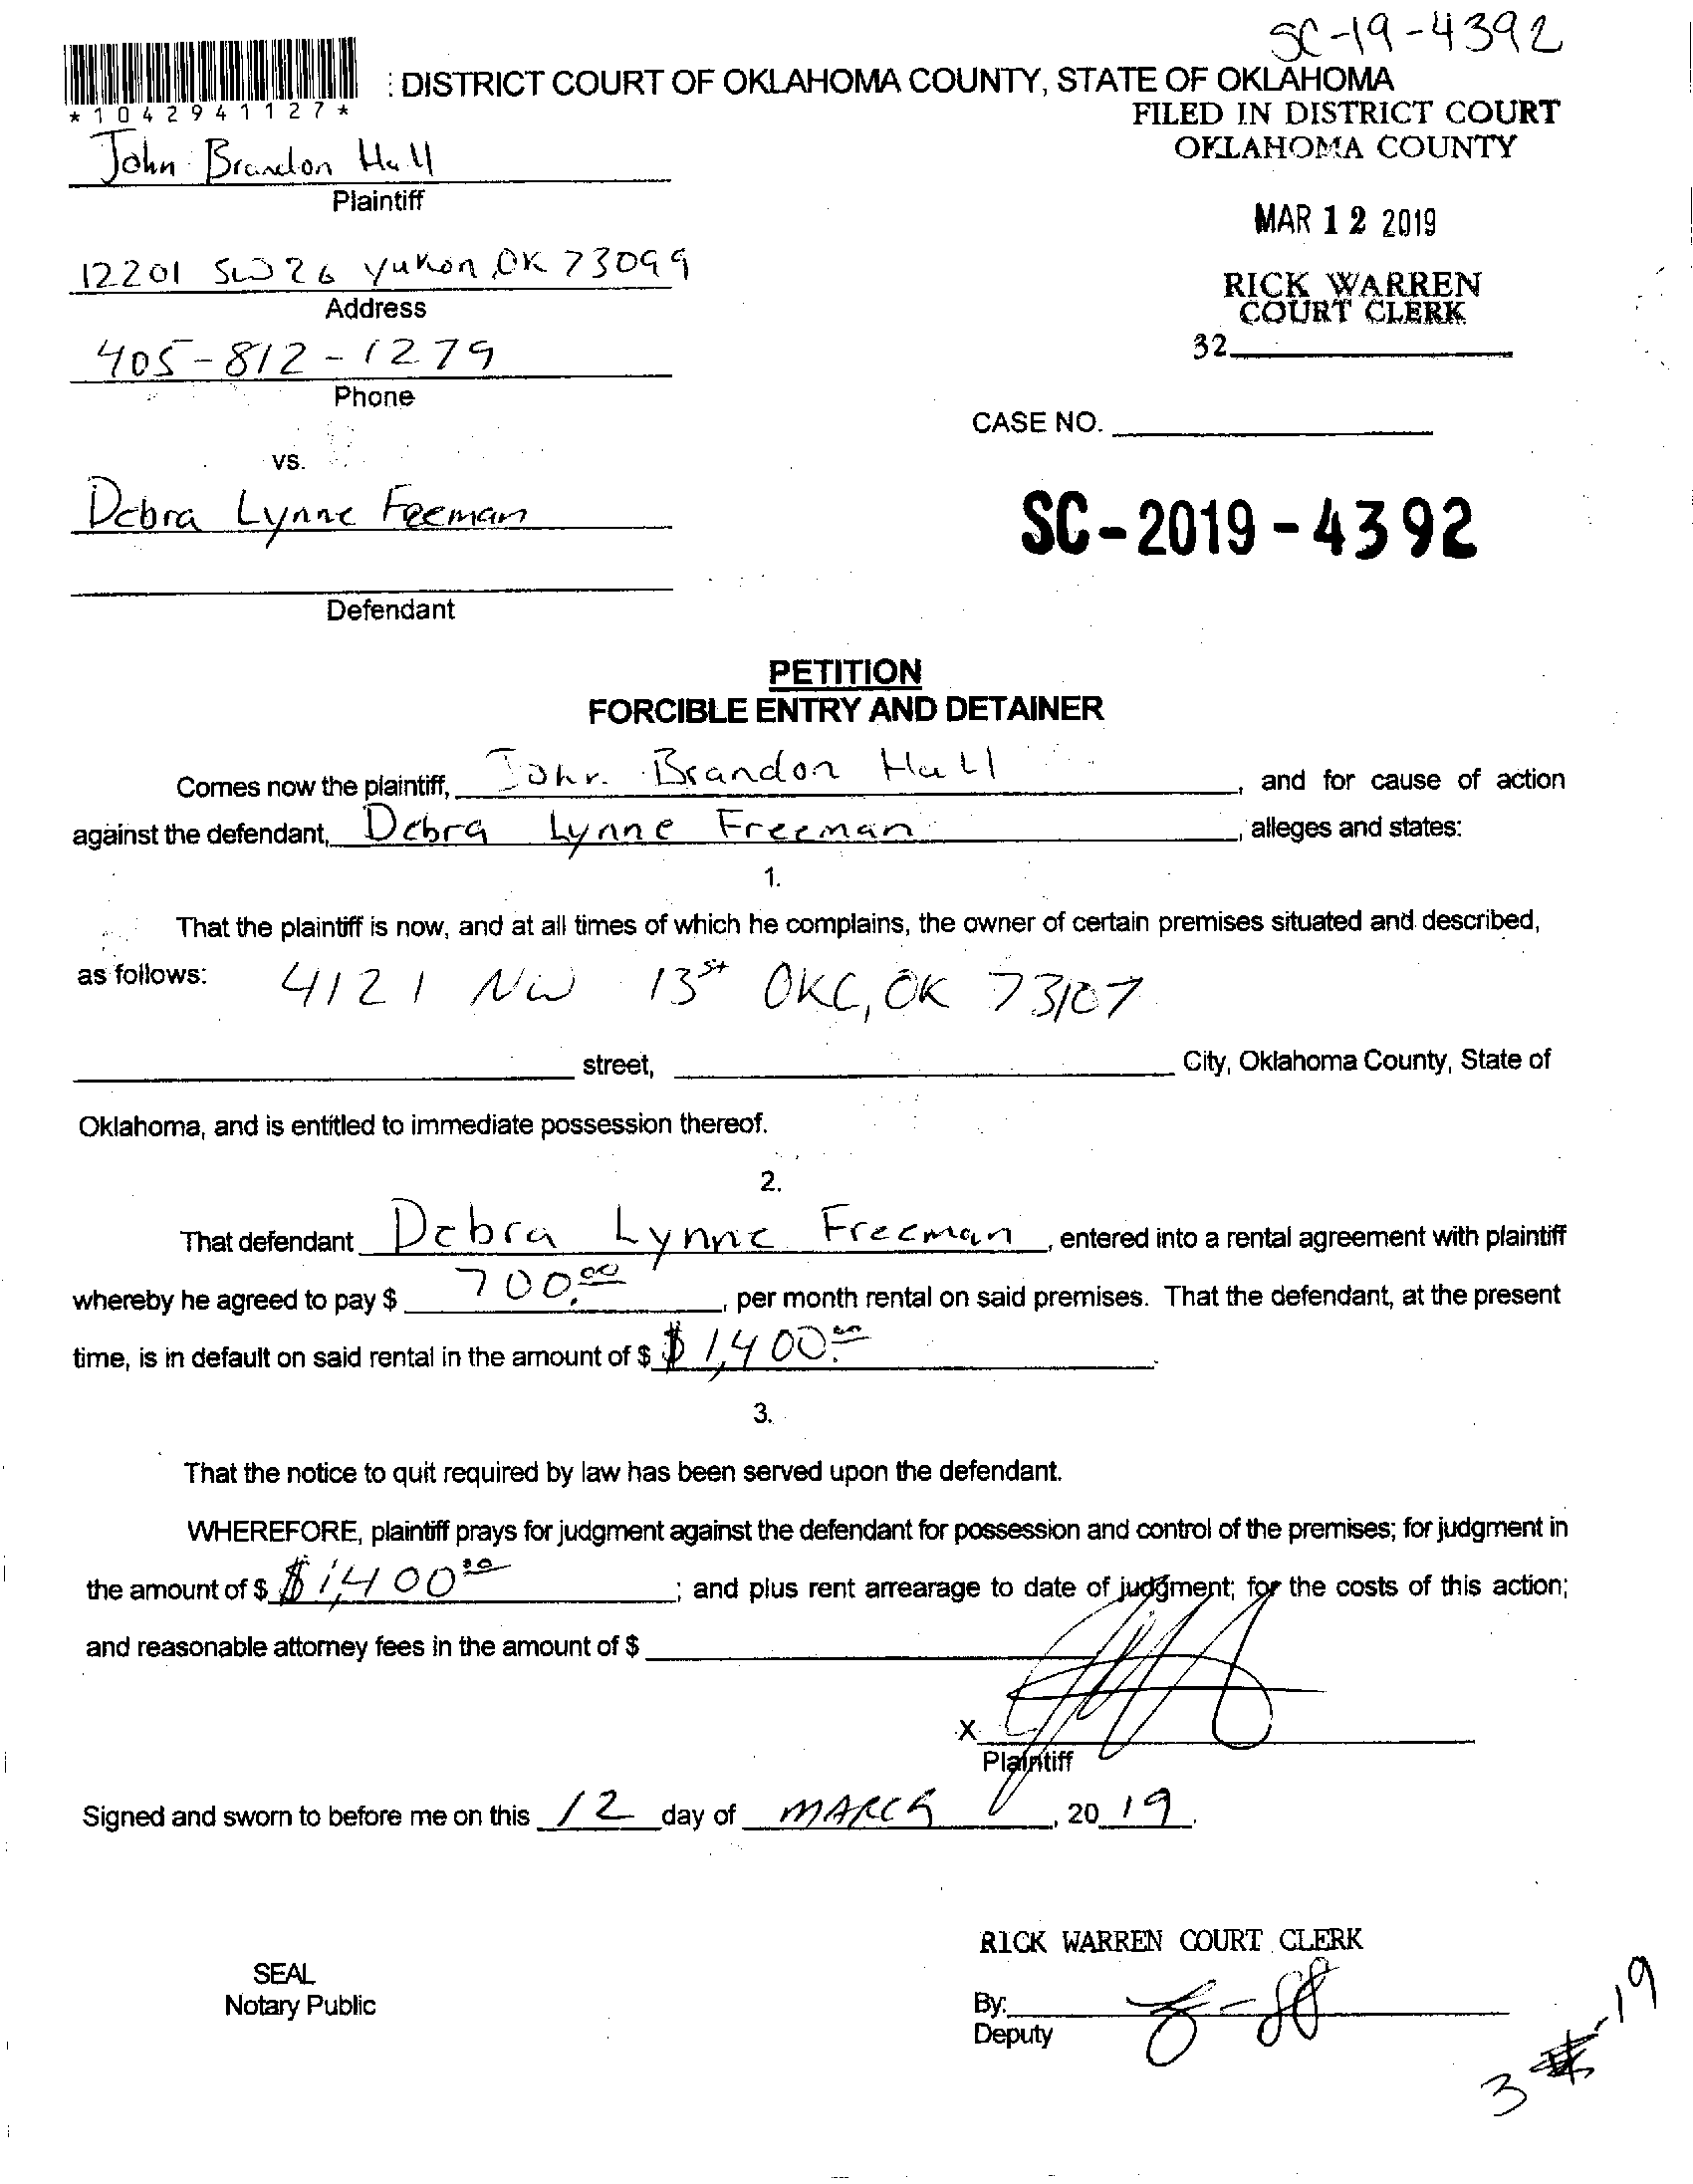 SC-19-4392
: DISTRICT COURT OF OKLAHOMA COUNTY, STATE OF OKLAHOMA
*1042941127*
FILED IN DISTRICT COURT
OKLAHOMA COUNTY
John Brandon Hall
Plaintiff
MAR 12 2019
12201 SW 26 Yukon, OK 73099
Address
RICK WARREN
COURT CLERK
405-812-1279
Phone
32
CASE NO.
vs.
Debra Lynne Freeman
SC-2019-4392
Defendant
PETITION
FORCIBLE ENTRY AND DETAINER
Comes now the plaintiff, John Brandon Hall, and for cause of action
against the defendant, Debra Lynne Freeman, alleges and states:
1.
That the plaintiff is now, and at all times of which he complains, the owner of certain premises situated and described,
as follows: 4121 NW 13st OKC, OK 73107
street, City, Oklahoma County, State of
Oklahoma, and is entitled to immediate possession thereof.
2.
That defendant Debra Lynne Freeman, entered into a rental agreement with plaintiff
whereby he agreed to pay $ 700.00, per month rental on said premises. That the defendant, at the present
time, is in default on said rental in the amount of $ $1,400.00.
3.
That the notice to quit required by law has been served upon the defendant.
WHEREFORE, plaintiff prays for judgment against the defendant for possession and control of the premises; for judgment in
the amount of $ $1,400.00; and plus rent arrearage to date of judgment; for the costs of this action;
and reasonable attorney fees in the amount of $
X
Plaintiff
Signed and sworn to before me on this 12 day of MARCH, 2019.
RICK WARREN COURT CLERK
SEAL
Notary Public
By:
Deputy